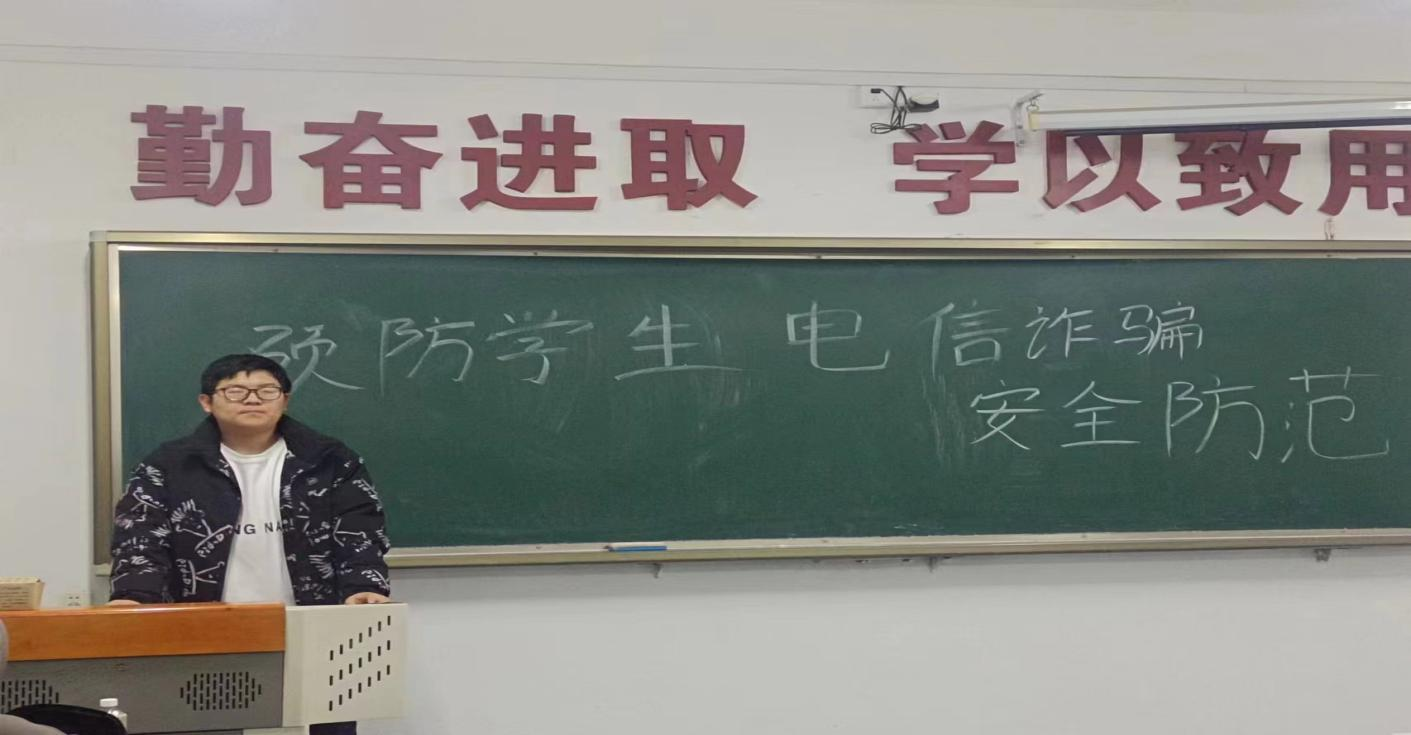 勤奋进取 学以致用
预防学生电信诈骗
安全防范
NG NA